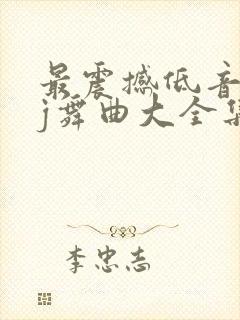 最震撼低音
j舞曲大全集
李忠志